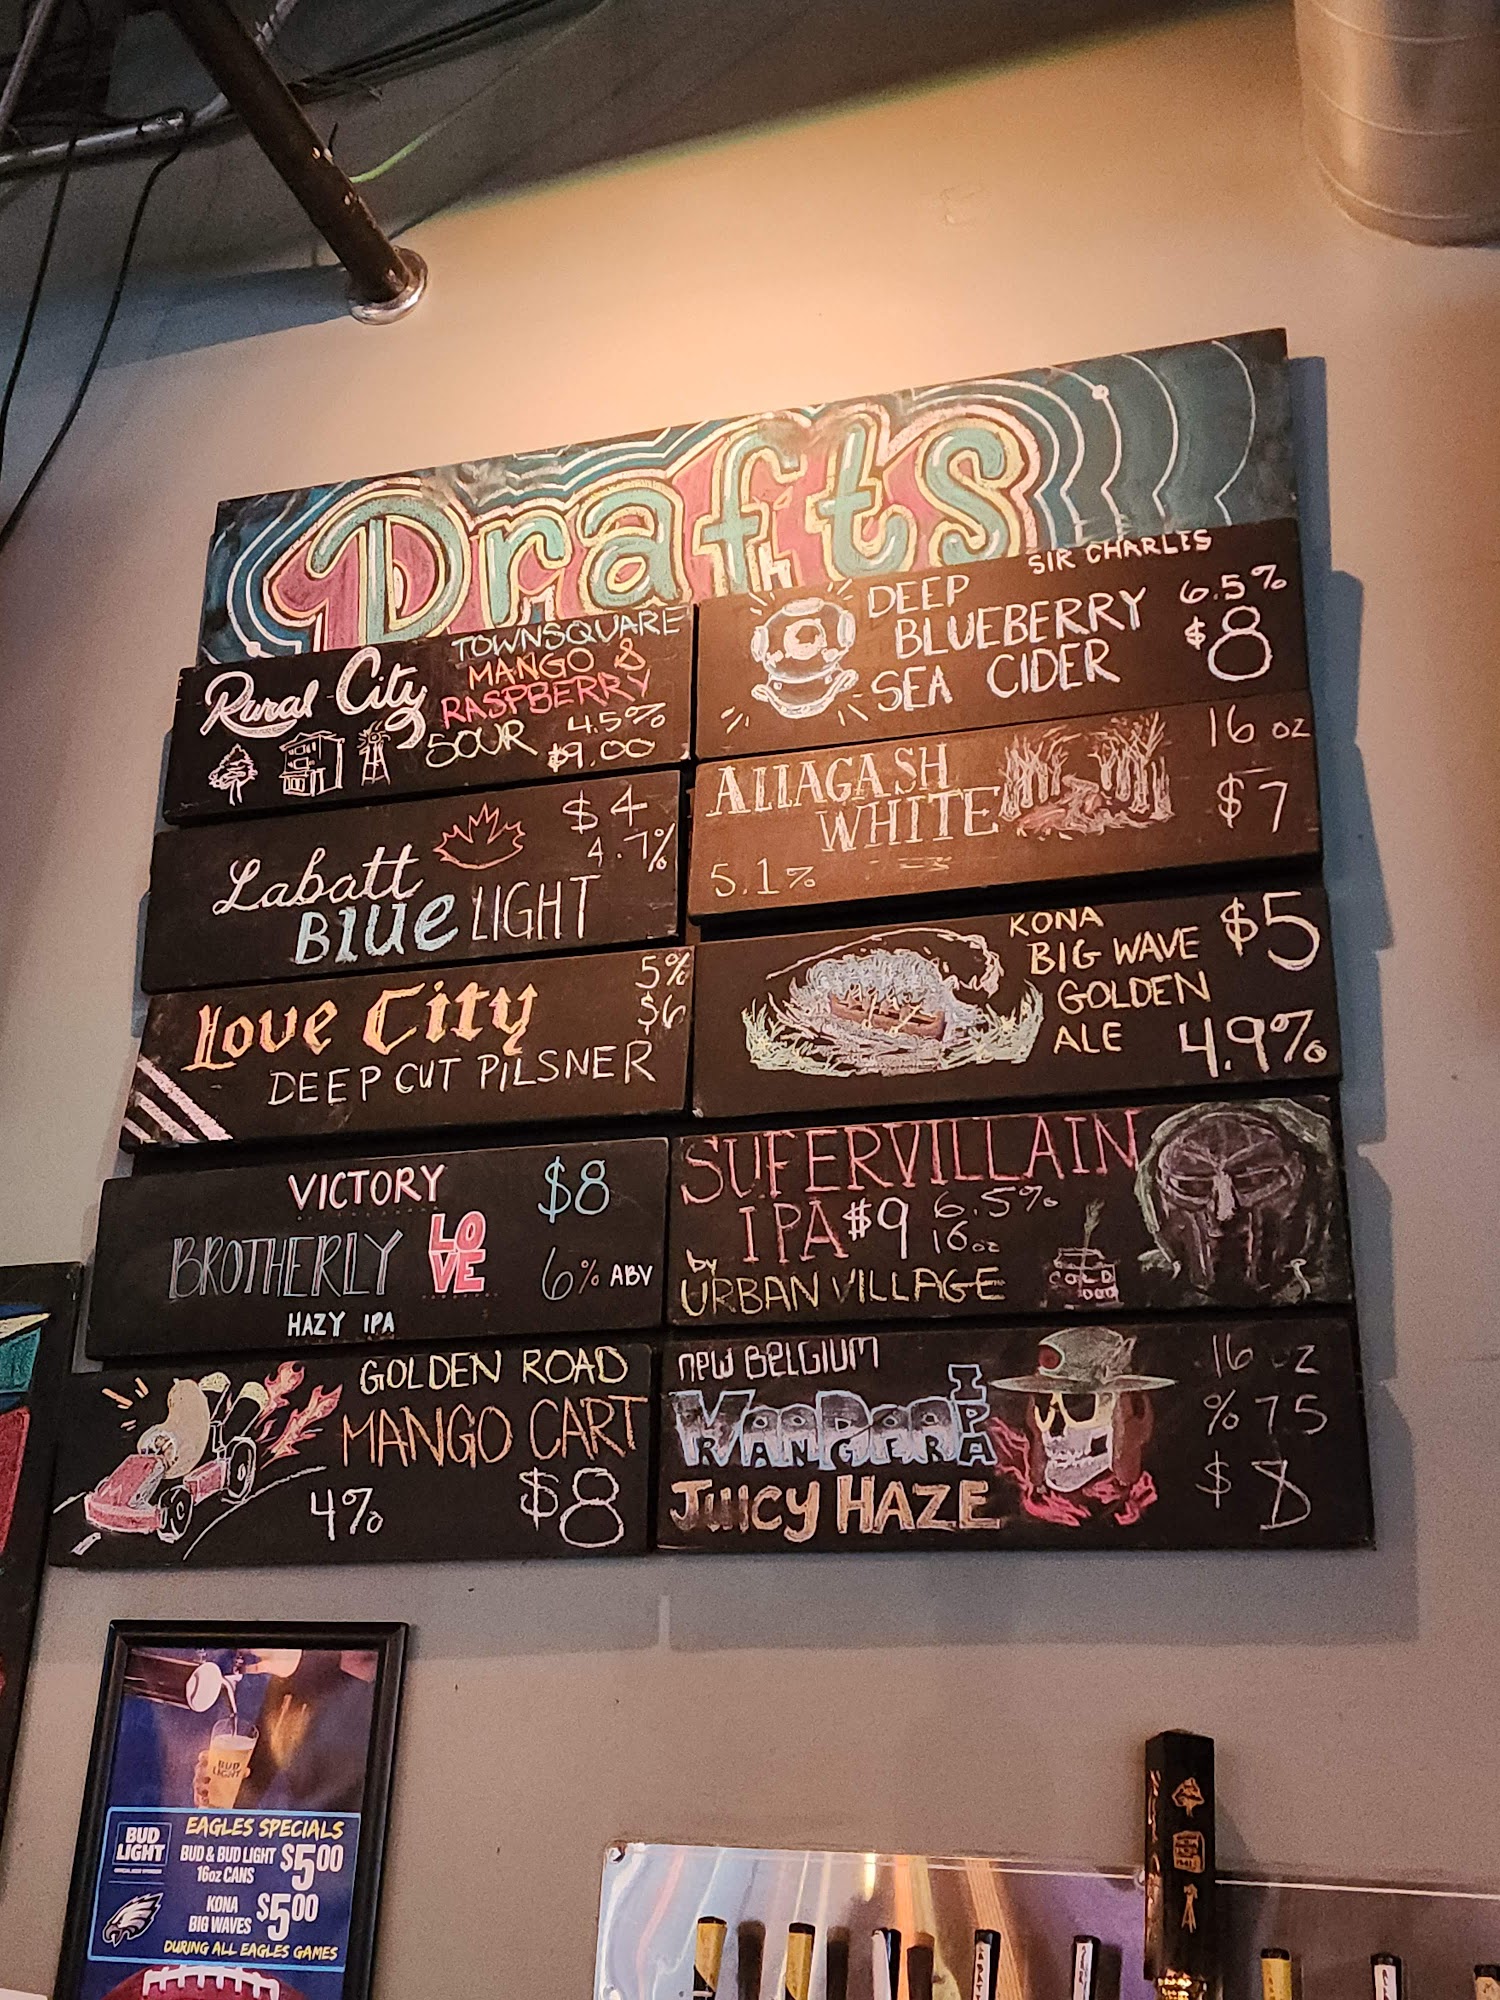 Drafts
Rural City
TOWNSQUARE
MANGO &
RASPBERRY
SOUR 4.5%
$9.00
SIR CHARLES
DEEP
BLUEBERRY
SEA CIDER
6.5%
$8
Labatt
BLUE LIGHT
$4
4.7%
ALLAGASH
WHITE
5.1%
16 oz
$7
Love City
DEEP CUT PILSNER
5%
$6
KONA
BIG WAVE
GOLDEN
ALE
$5
4.9%
VICTORY
BROTHERLY LOVE
HAZY IPA
$8
6% ABV
SUPERVILLAIN
IPA $9 6.5%
16oz
by
URBAN VILLAGE
COLD
GOLDEN ROAD
MANGO CART
4% $8
NEW BELGIUM
VOODOO
RANGER IPA
JUICY HAZE
16 oz
%75
$8
BUD
LIGHT
BUD
LIGHT
EAGLES SPECIALS
BUD & BUD LIGHT
16oz CANS
$5.00
KONA
BIG WAVES
$5.00
DURING ALL EAGLES GAMES